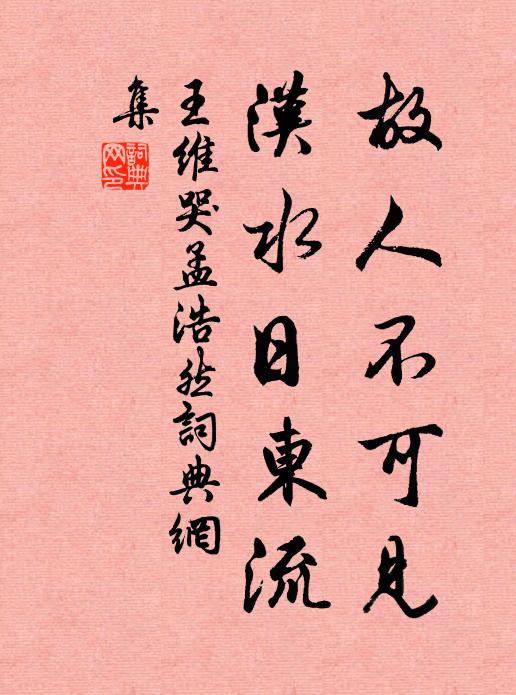 故人不可見
漢水日東流
王維哭孟浩然詞典網
集
詞典網印